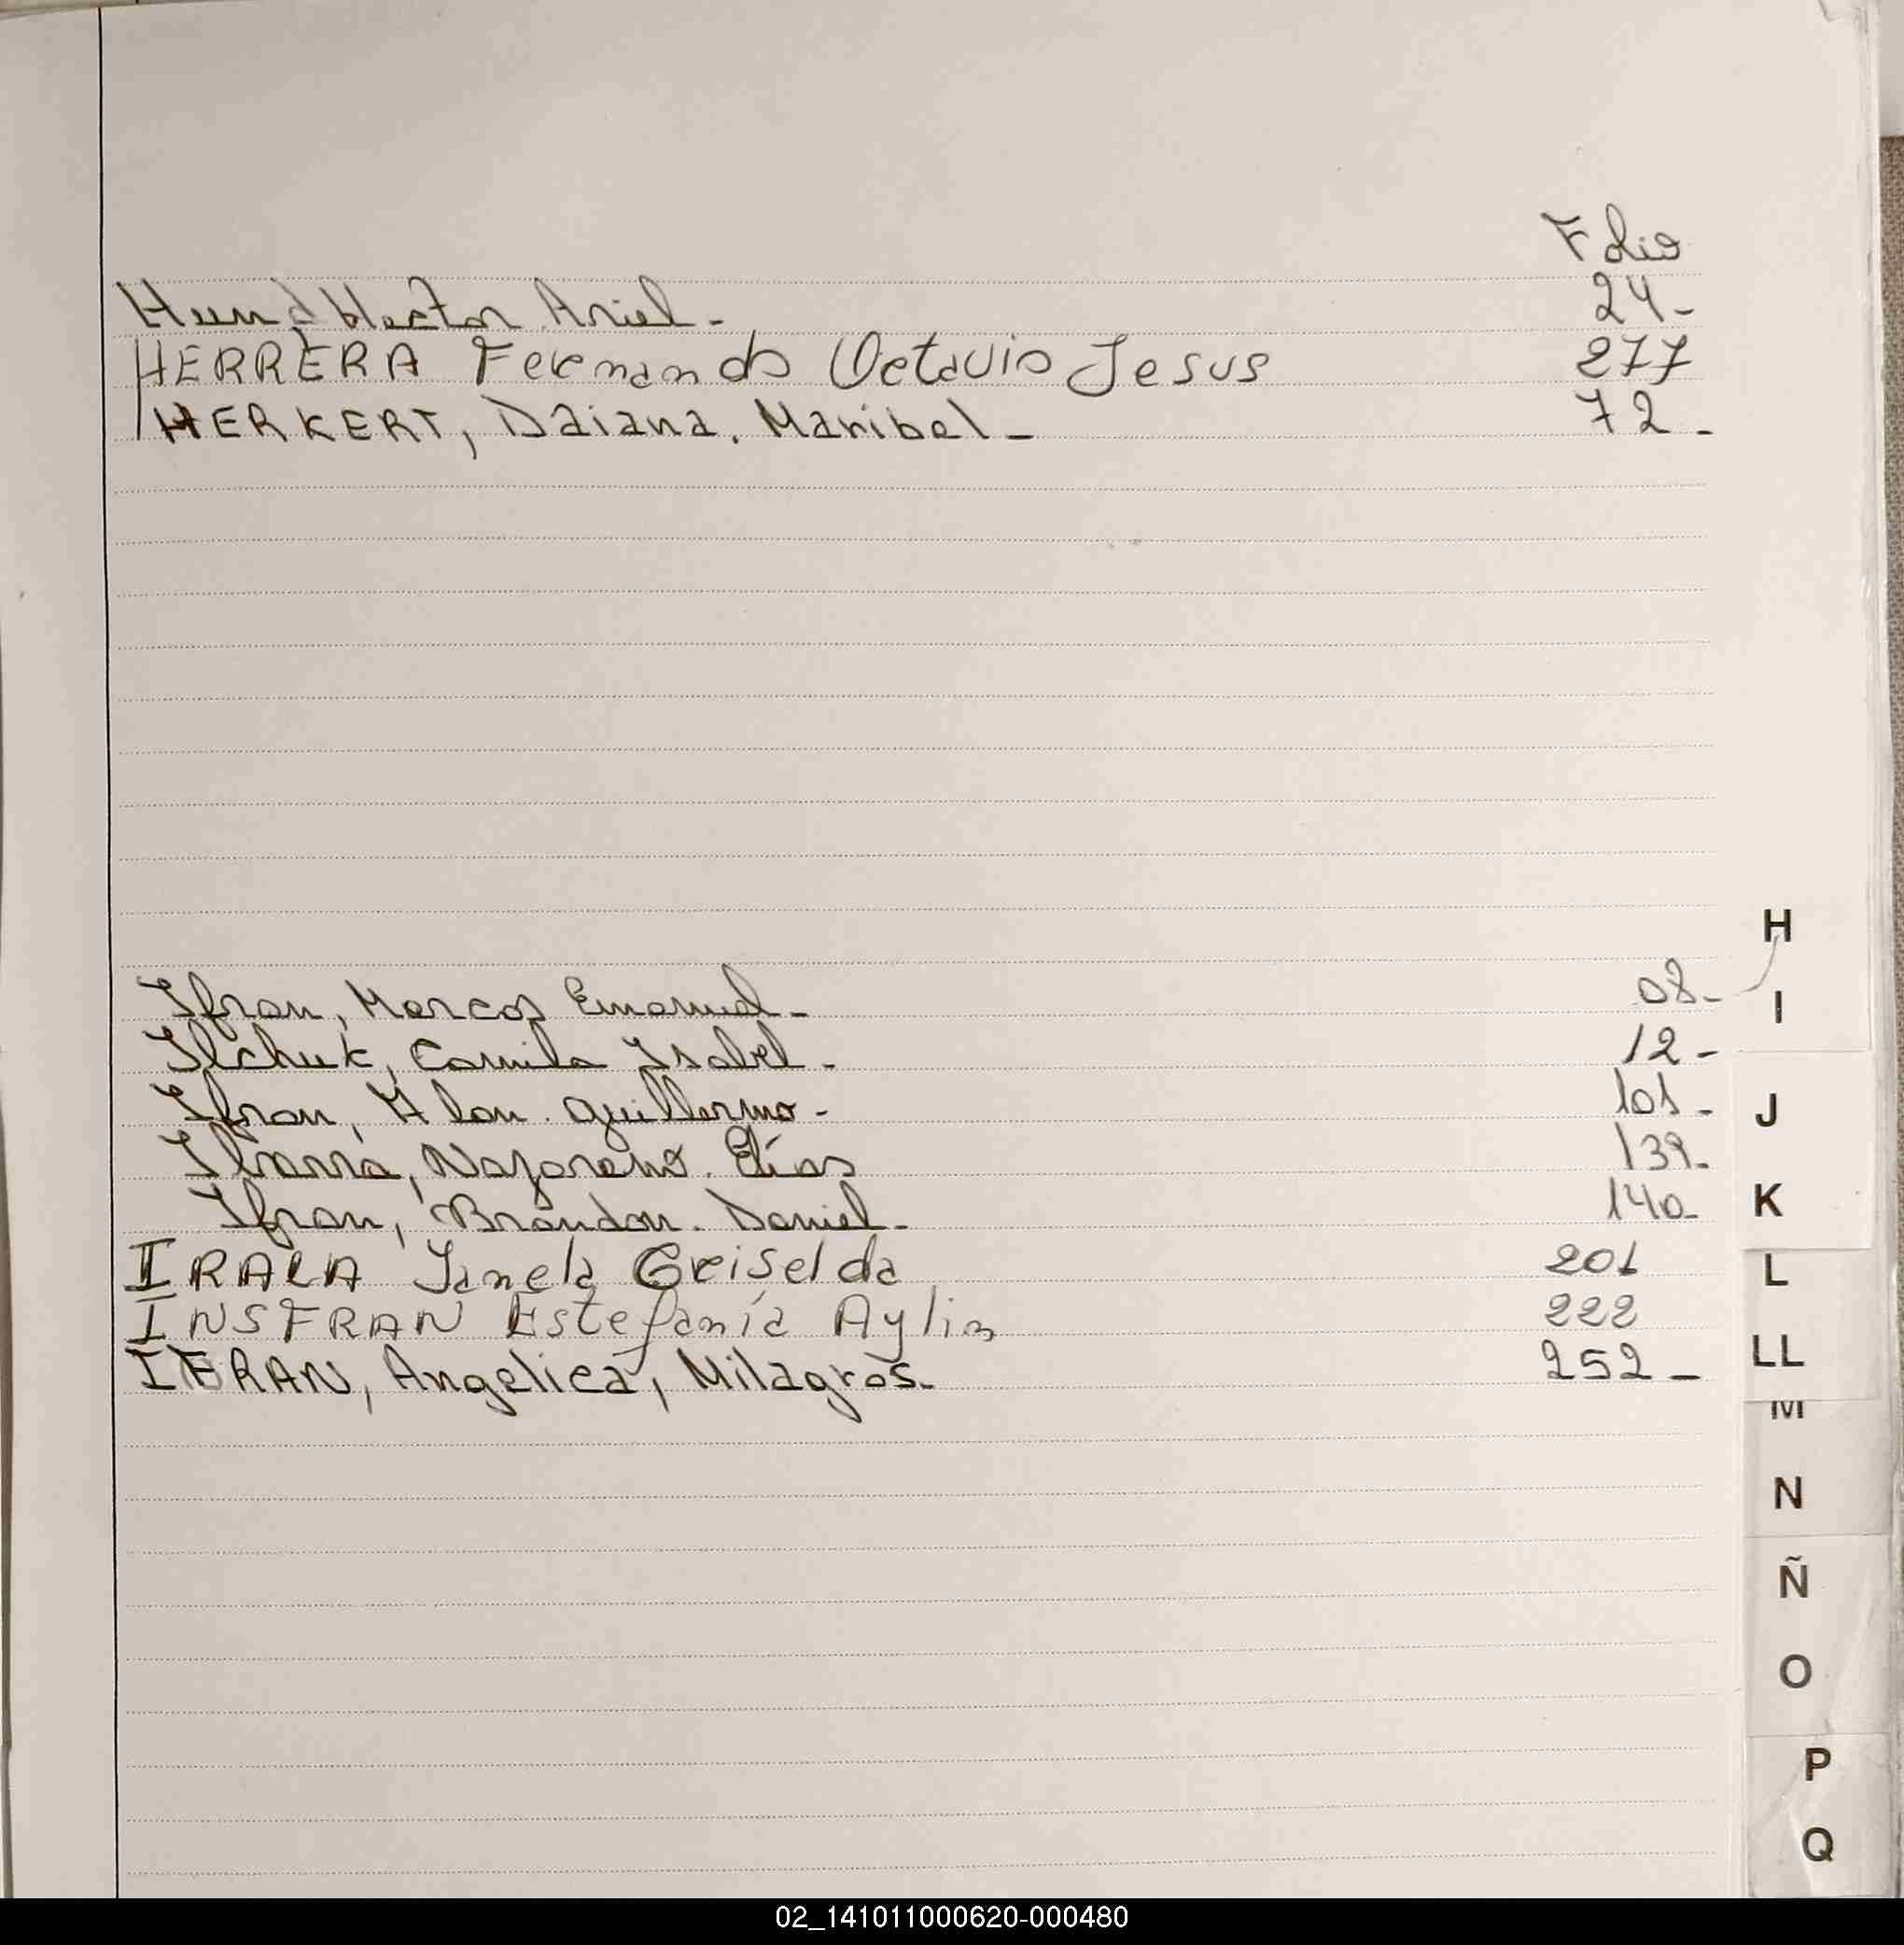 Folio
Hund Hector Ariel. 24-
HERRERA Fernando Octavio Jesus 277
HERKERT, Daiana. Maribel - 72-
H
Ifran, Marcos Emanuel- 08-
I
Ilchuk, Camila Isabel- 12-
Ifran, Alan. Guillermo- 101-
J
Ibarra, Nazareno. Elías 139-
Ifran, Brandon. Daniel- 140-
K
IRALA Yanela Griselda 201
L
INSFRAN Estefanía Aylin 222
IFRAN, Angelica, Milagros. 252-
LL
M
N
Ñ
O
P
Q
02_141011000620-000480